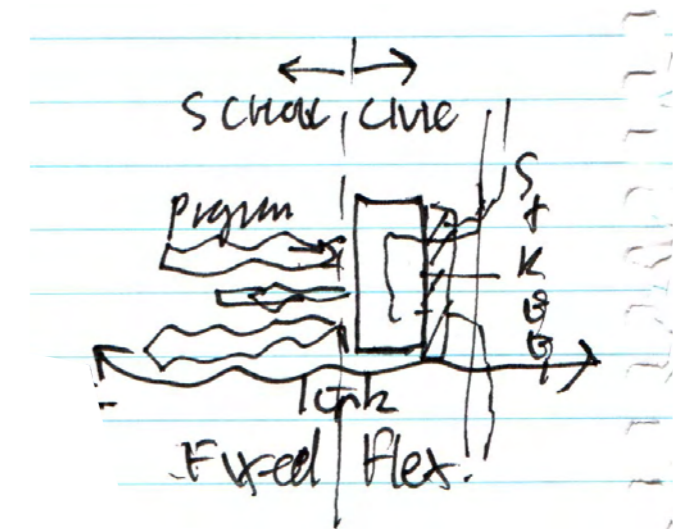 School Civic
Program
S
K
Fixed Flex.